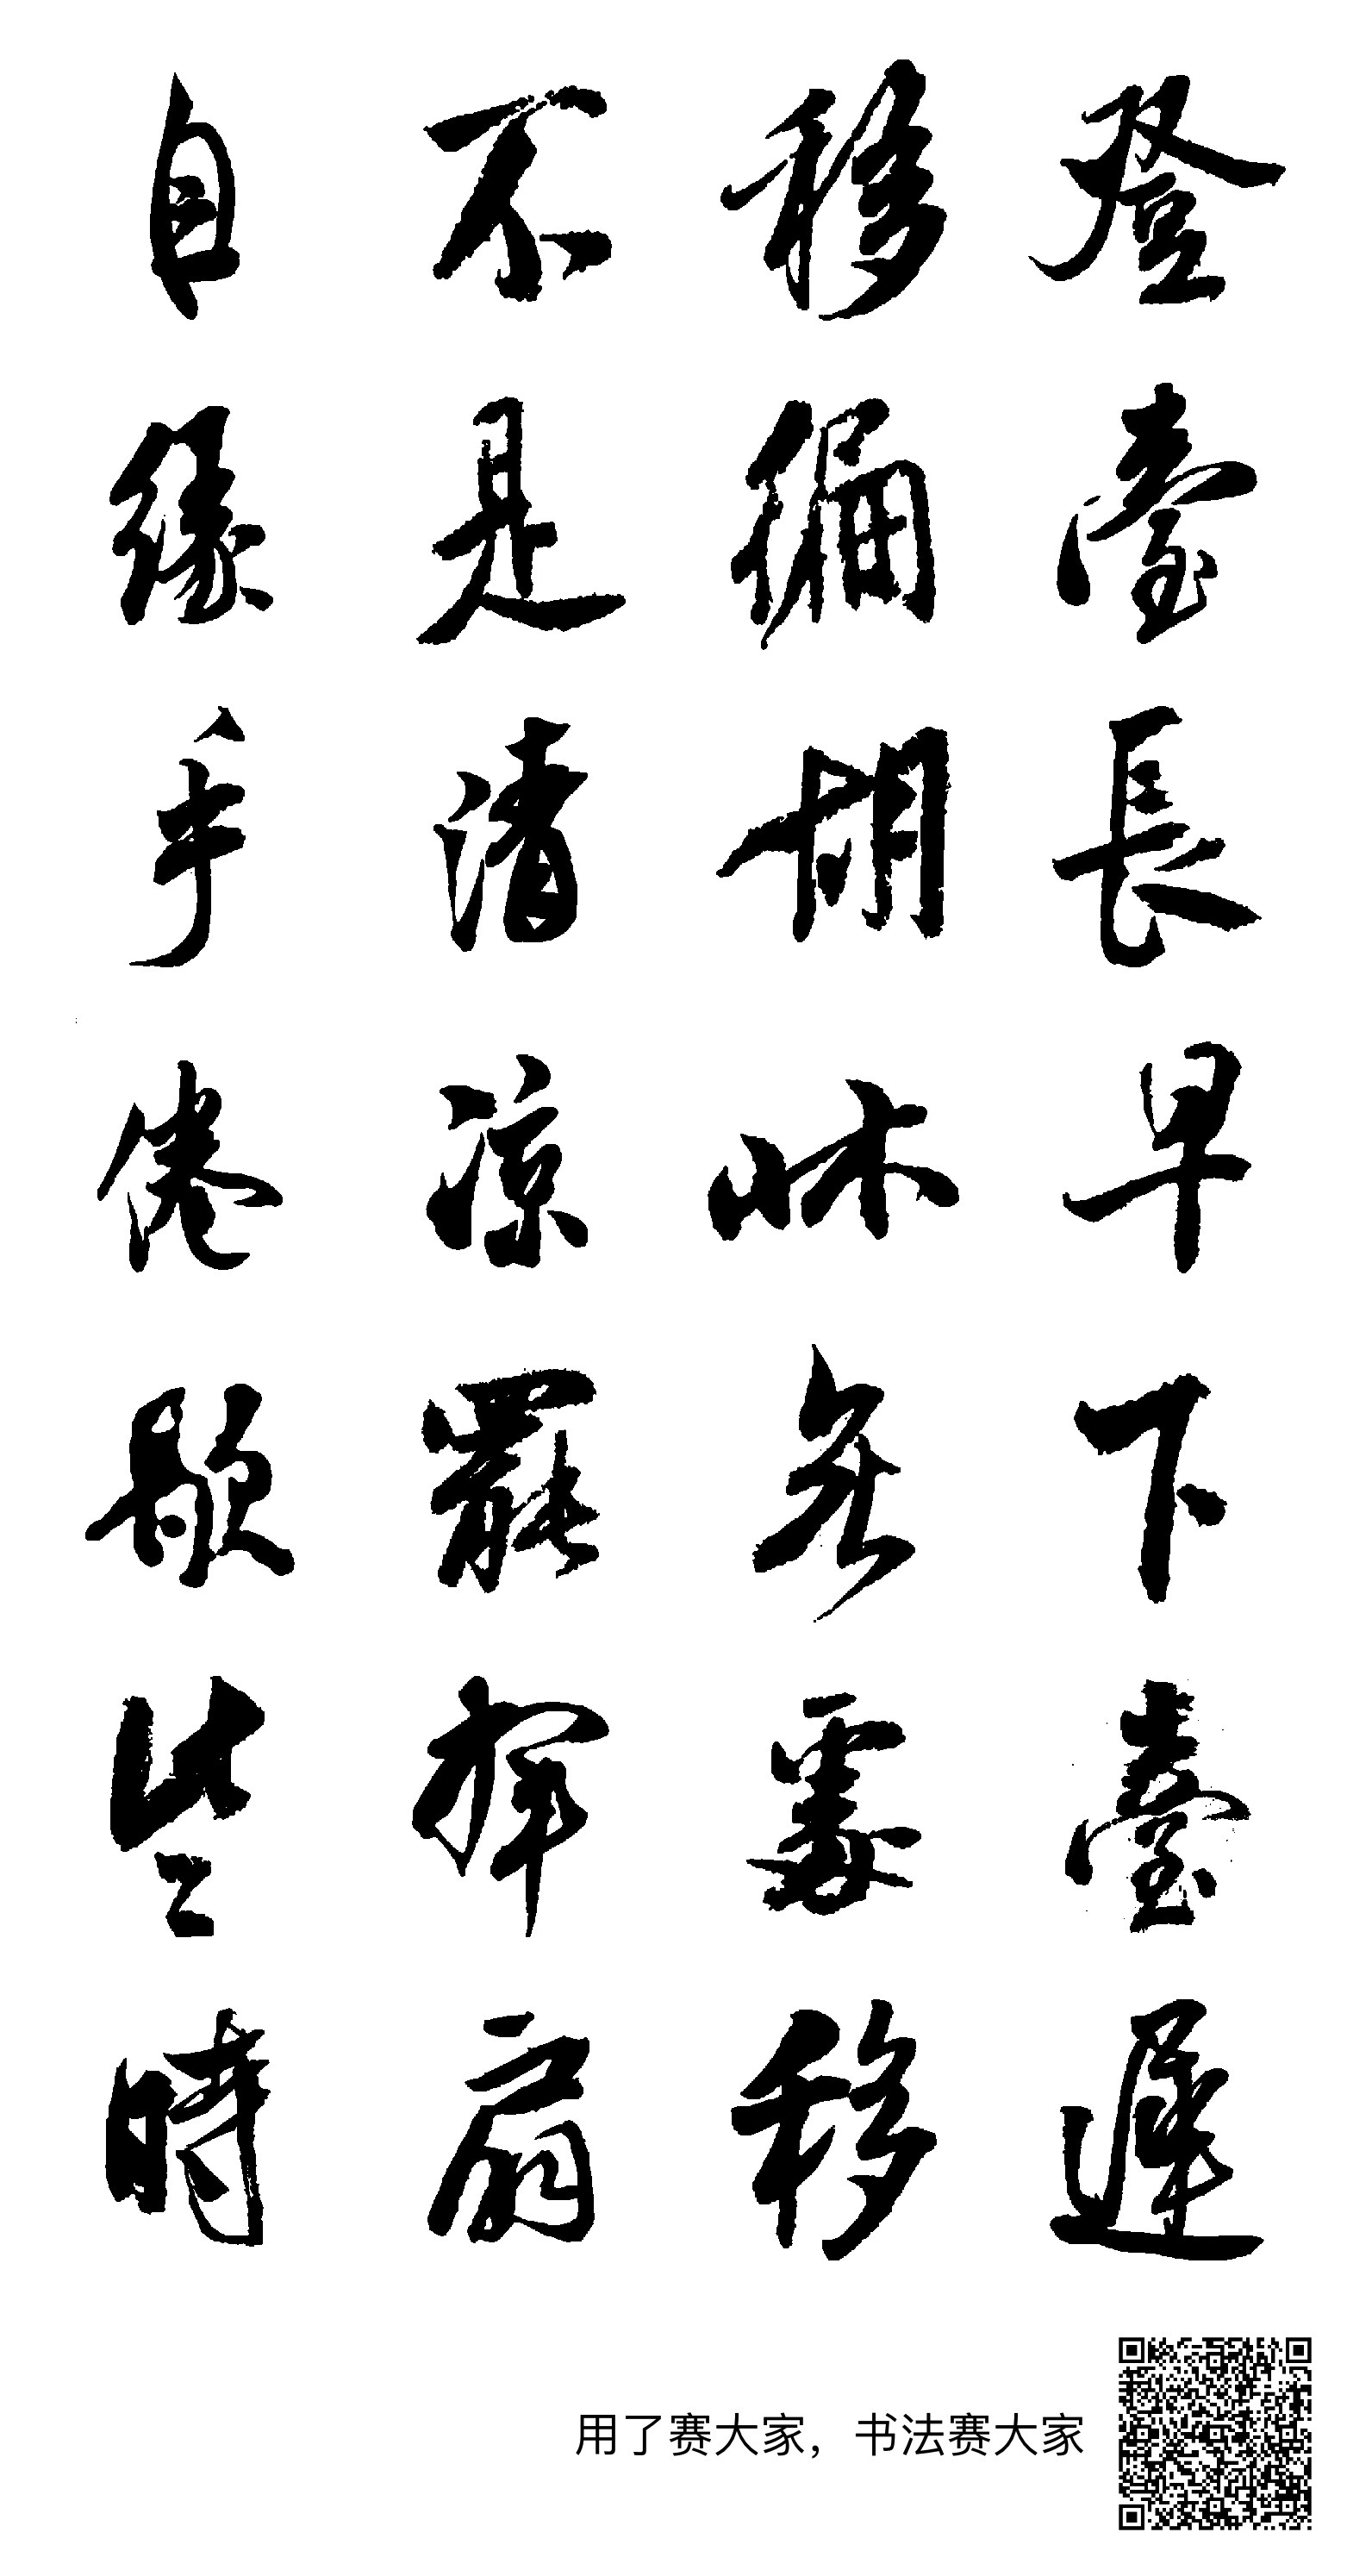 登臺長早下臺遲
移徧胡牀無處移
不是清涼罷揮扇
自緣手倦歇些時
用了赛大家，书法赛大家